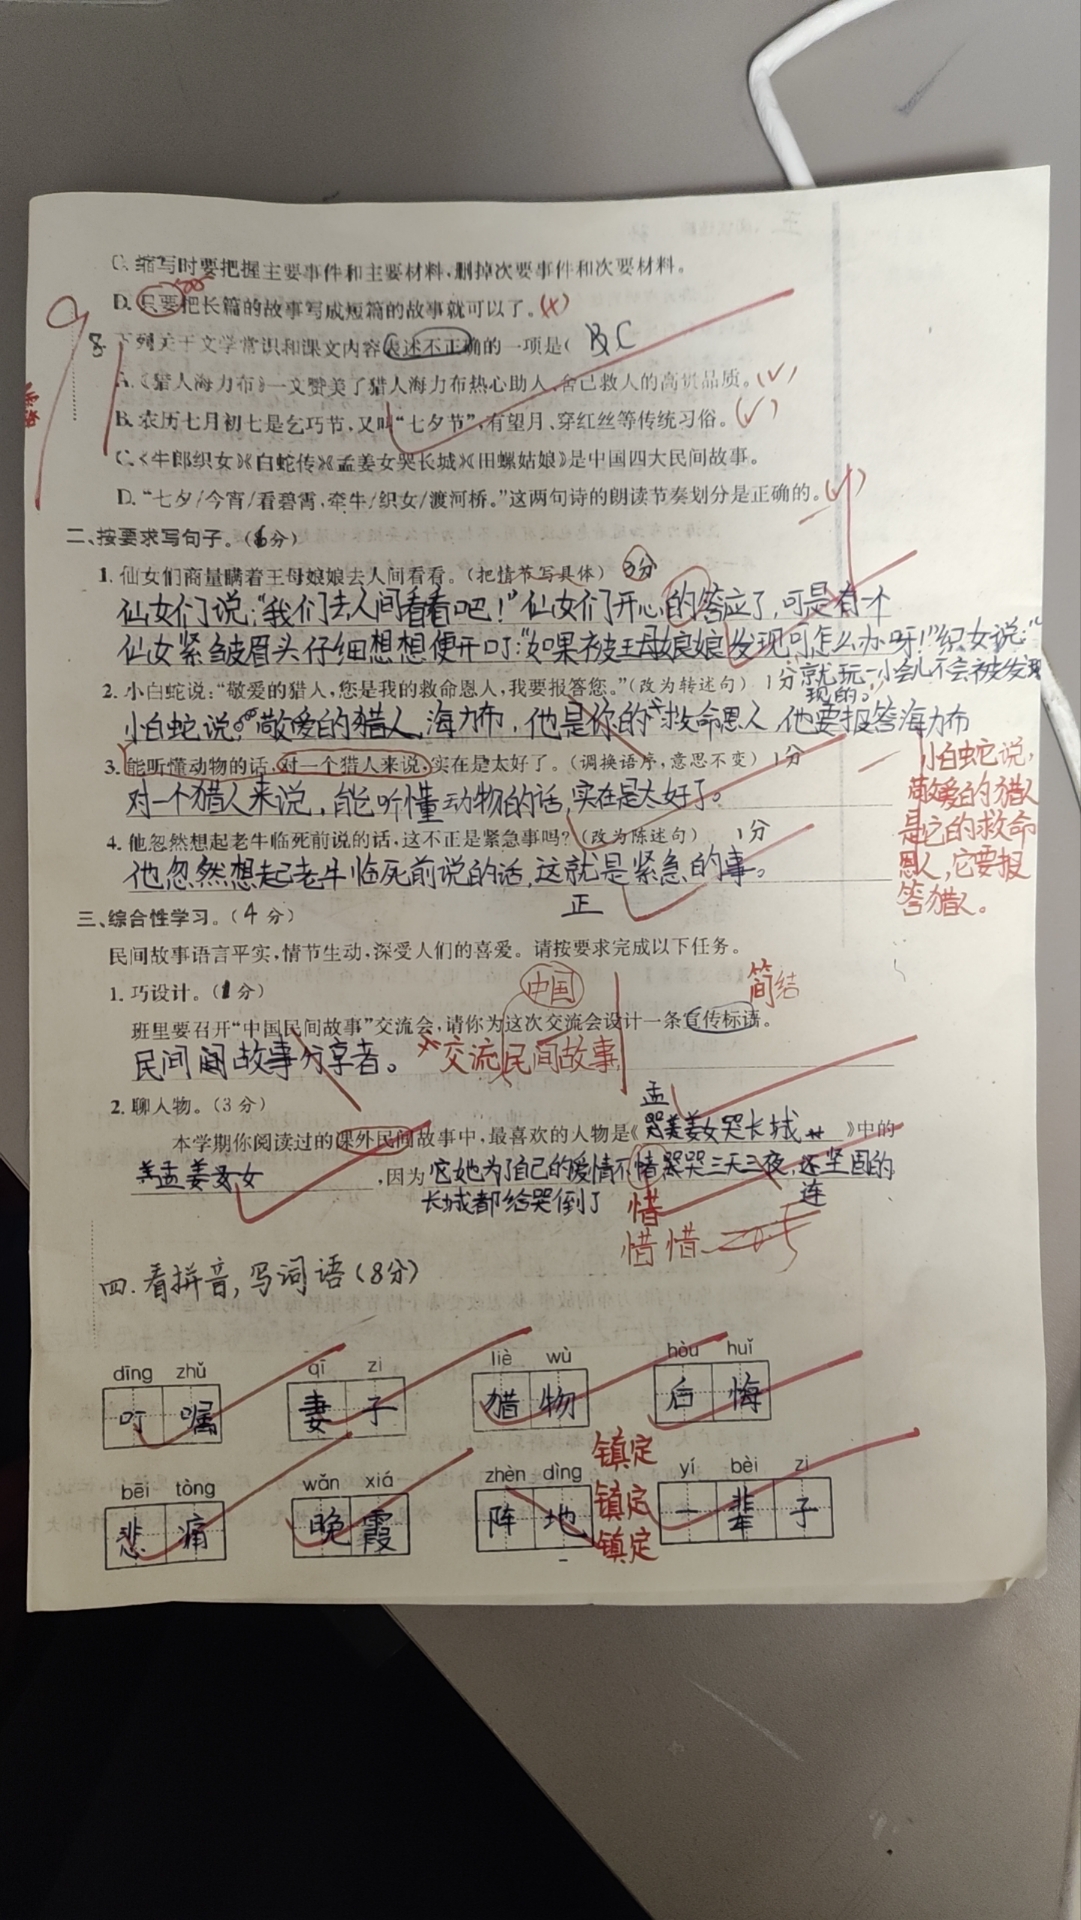 C. 缩写时要把握主要事件和主要材料,删掉次要事件和次要材料。
D. 只要把长篇的故事写成短篇的故事就可以了。(×)
8. 下列关于文学常识和课文内容表述不正确的一项是( C
A.《猎人海力布》一文赞美了猎人海力布热心助人、舍己救人的高贵品质。(√)
B. 农历七月初七是乞巧节,又叫“七夕节”,有望月、穿红丝等传统习俗。(√)
C.《牛郎织女》《白蛇传》《孟姜女哭长城》《田螺姑娘》是中国四大民间故事。
D. “七夕/今宵/看碧霄,牵牛/织女/渡河桥。”这两句诗的朗读节奏划分是正确的。(√)
二、按要求写句子。(6分)
1. 仙女们商量瞒着王母娘娘去人间看看。(把情节写具体) 3分
仙女们说:“我们去人间看看吧!”仙女们开心的答应了,可是有一个
仙女紧皱眉头仔细想想便开口:“如果被王母娘娘发现可怎么办呀!”织女说:“
就玩一小会儿不会被发现
现的。”
2. 小白蛇说:“敬爱的猎人,您是我的救命恩人,我要报答您。”(改为转述句) 1分
小白蛇说:敬爱的猎人,海力布,他是你的救命恩人,他要报答海力布
小白蛇说,
敬爱的猎人
是它的救命
恩人,它要报
答猎人。
3. 能听懂动物的话,对一个猎人来说,实在是太好了。(调换语序,意思不变) 1分
对一个猎人来说,能听懂动物的话,实在是太好了。
4. 他忽然想起老牛临死前说的话,这不正是紧急事吗?(改为陈述句) 1分
他忽然想起老牛临死前说的话,这就是紧急的事。
正
三、综合性学习。(4分)
民间故事语言平实,情节生动,深受人们的喜爱。请按要求完成以下任务。
1. 巧设计。(1分)
中国
简结
班里要召开“中国民间故事”交流会,请你为这次交流会设计一条宣传标语。
民间故事分享者。
交流民间故事
2. 聊人物。(3分)
孟
本学期你阅读过的课外民间故事中,最喜欢的人物是《姜女哭长城》中的
孟姜女,因为她为了自己的爱情不惜哭哭三天三夜,还坚固的
连
长城都给哭倒了
惜
惜 惜
四.看拼音,写词语(8分)
dīng zhǔ qī zi liè wù hòu huǐ
叮嘱 妻子 猎物 后悔
镇定
bēi tòng wǎn xiá zhèn dìng yí bèi zi
悲痛 晚霞 阵地 镇定 一辈子
镇定